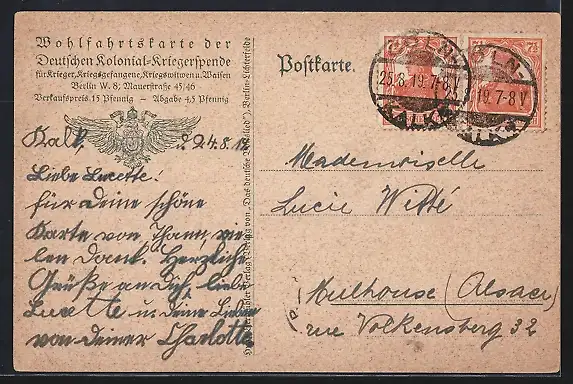 Wohlfahrtskarte der
Deutschen Kolonial-Kriegerspende
für Krieger, Kriegsgefangene, Kriegswitwen u. Waisen
Berlin W. 8, Mauerstraße 45/46
Verkaufspreis 15 Pfennig — Abgabe 4,5 Pfennig
Postkarte.
25.8.19. 7-8V
KALK
19. 7-8V
Kalk, d. 24.8.19
Liebe Lucette!
für deine schöne
Karte von Thann, vie-
len Dank. Herzliche
Grüße an dich, liebe
Lucette u. deine Lieben
von deiner Charlotte
Mademoiselle
Lucie Witté
Mulhouse (Alsace)
rue Volkensberg 32